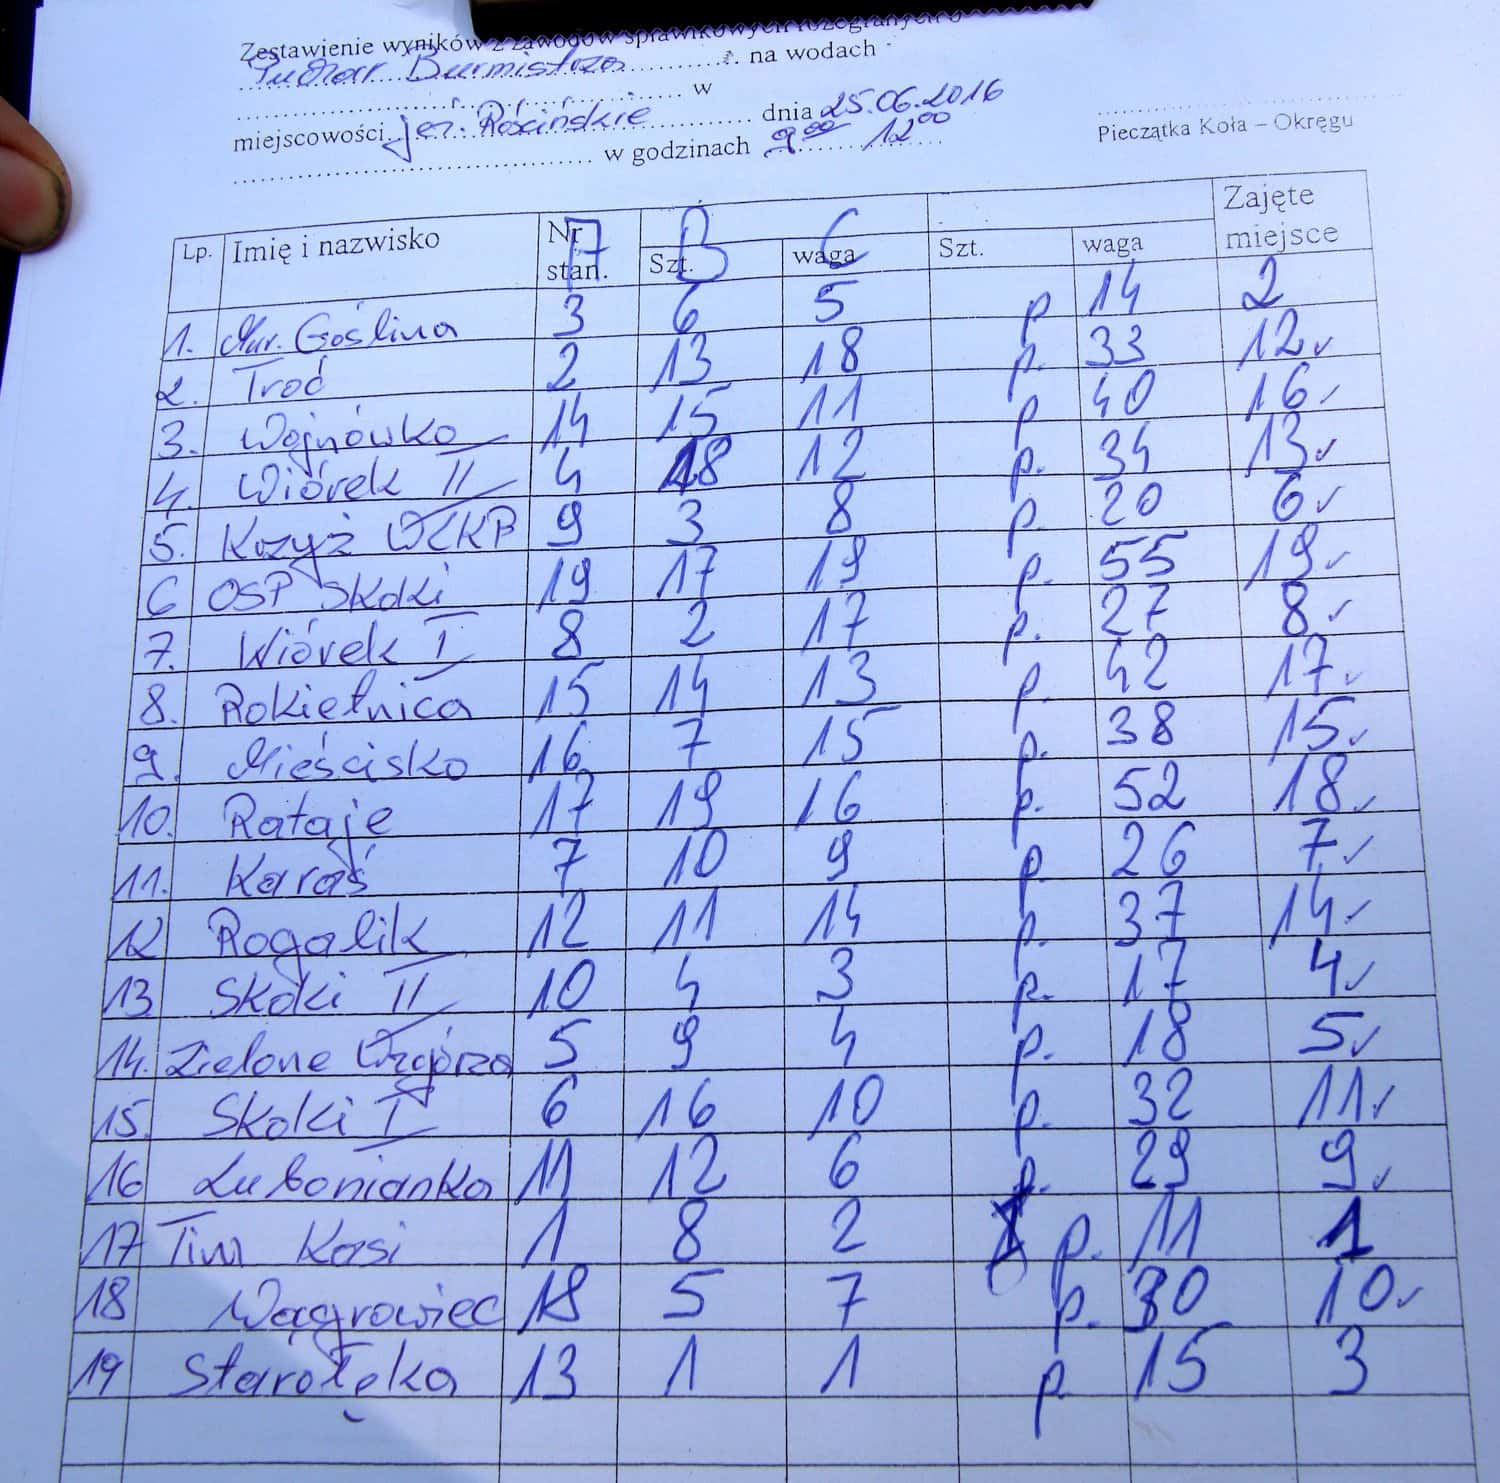 Zestawienie wyników z zawodów sprawnikowych rozegranych o
Puchar Burmistrza na wodach
w
miejscowości jez. Rościńskie dnia 25.06.2016
w godzinach 9⁰⁰ 12⁰⁰
Pieczątka Koła – Okręgu
Lp. Imię i nazwisko Nr stan. A Szt. B waga C Szt. waga Zajęte miejsce
1. Mur. Goślina 3 6 5 p 14 2
2. Troć 2 13 18 p. 33 12 ✓
3. Wojnówko 14 15 11 p 40 16 ✓
4. Wiórek II 4 18 12 p. 34 13 ✓
5. Krzyż WLKP 9 3 8 p 20 6 ✓
6 OSP Skoki 19 17 19 p. 55 19 ✓
7. Wiórek I 8 2 17 p. 27 8 ✓
8. Rokietnica 15 14 13 p. 42 17 ✓
9. Mieścisko 16 7 15 p. 38 15 ✓
10. Rataje 17 19 16 p. 52 18 ✓
11. Karaś 7 10 9 p 26 7 ✓
12 Rogalik 12 11 14 p. 37 14 ✓
13 Skoki II 10 4 3 p. 17 4 ✓
14. Zielone Wzgórza 5 9 4 p. 18 5 ✓
15. Skoki I 6 16 10 p. 32 11 ✓
16 Lubonianka 11 12 6 p. 29 9 ✓
17 Tim Kosi 1 8 2 p. 11 1
18 Wągrowiec 18 5 7 p. 30 10 ✓
19 Starołęka 13 1 1 p. 15 3